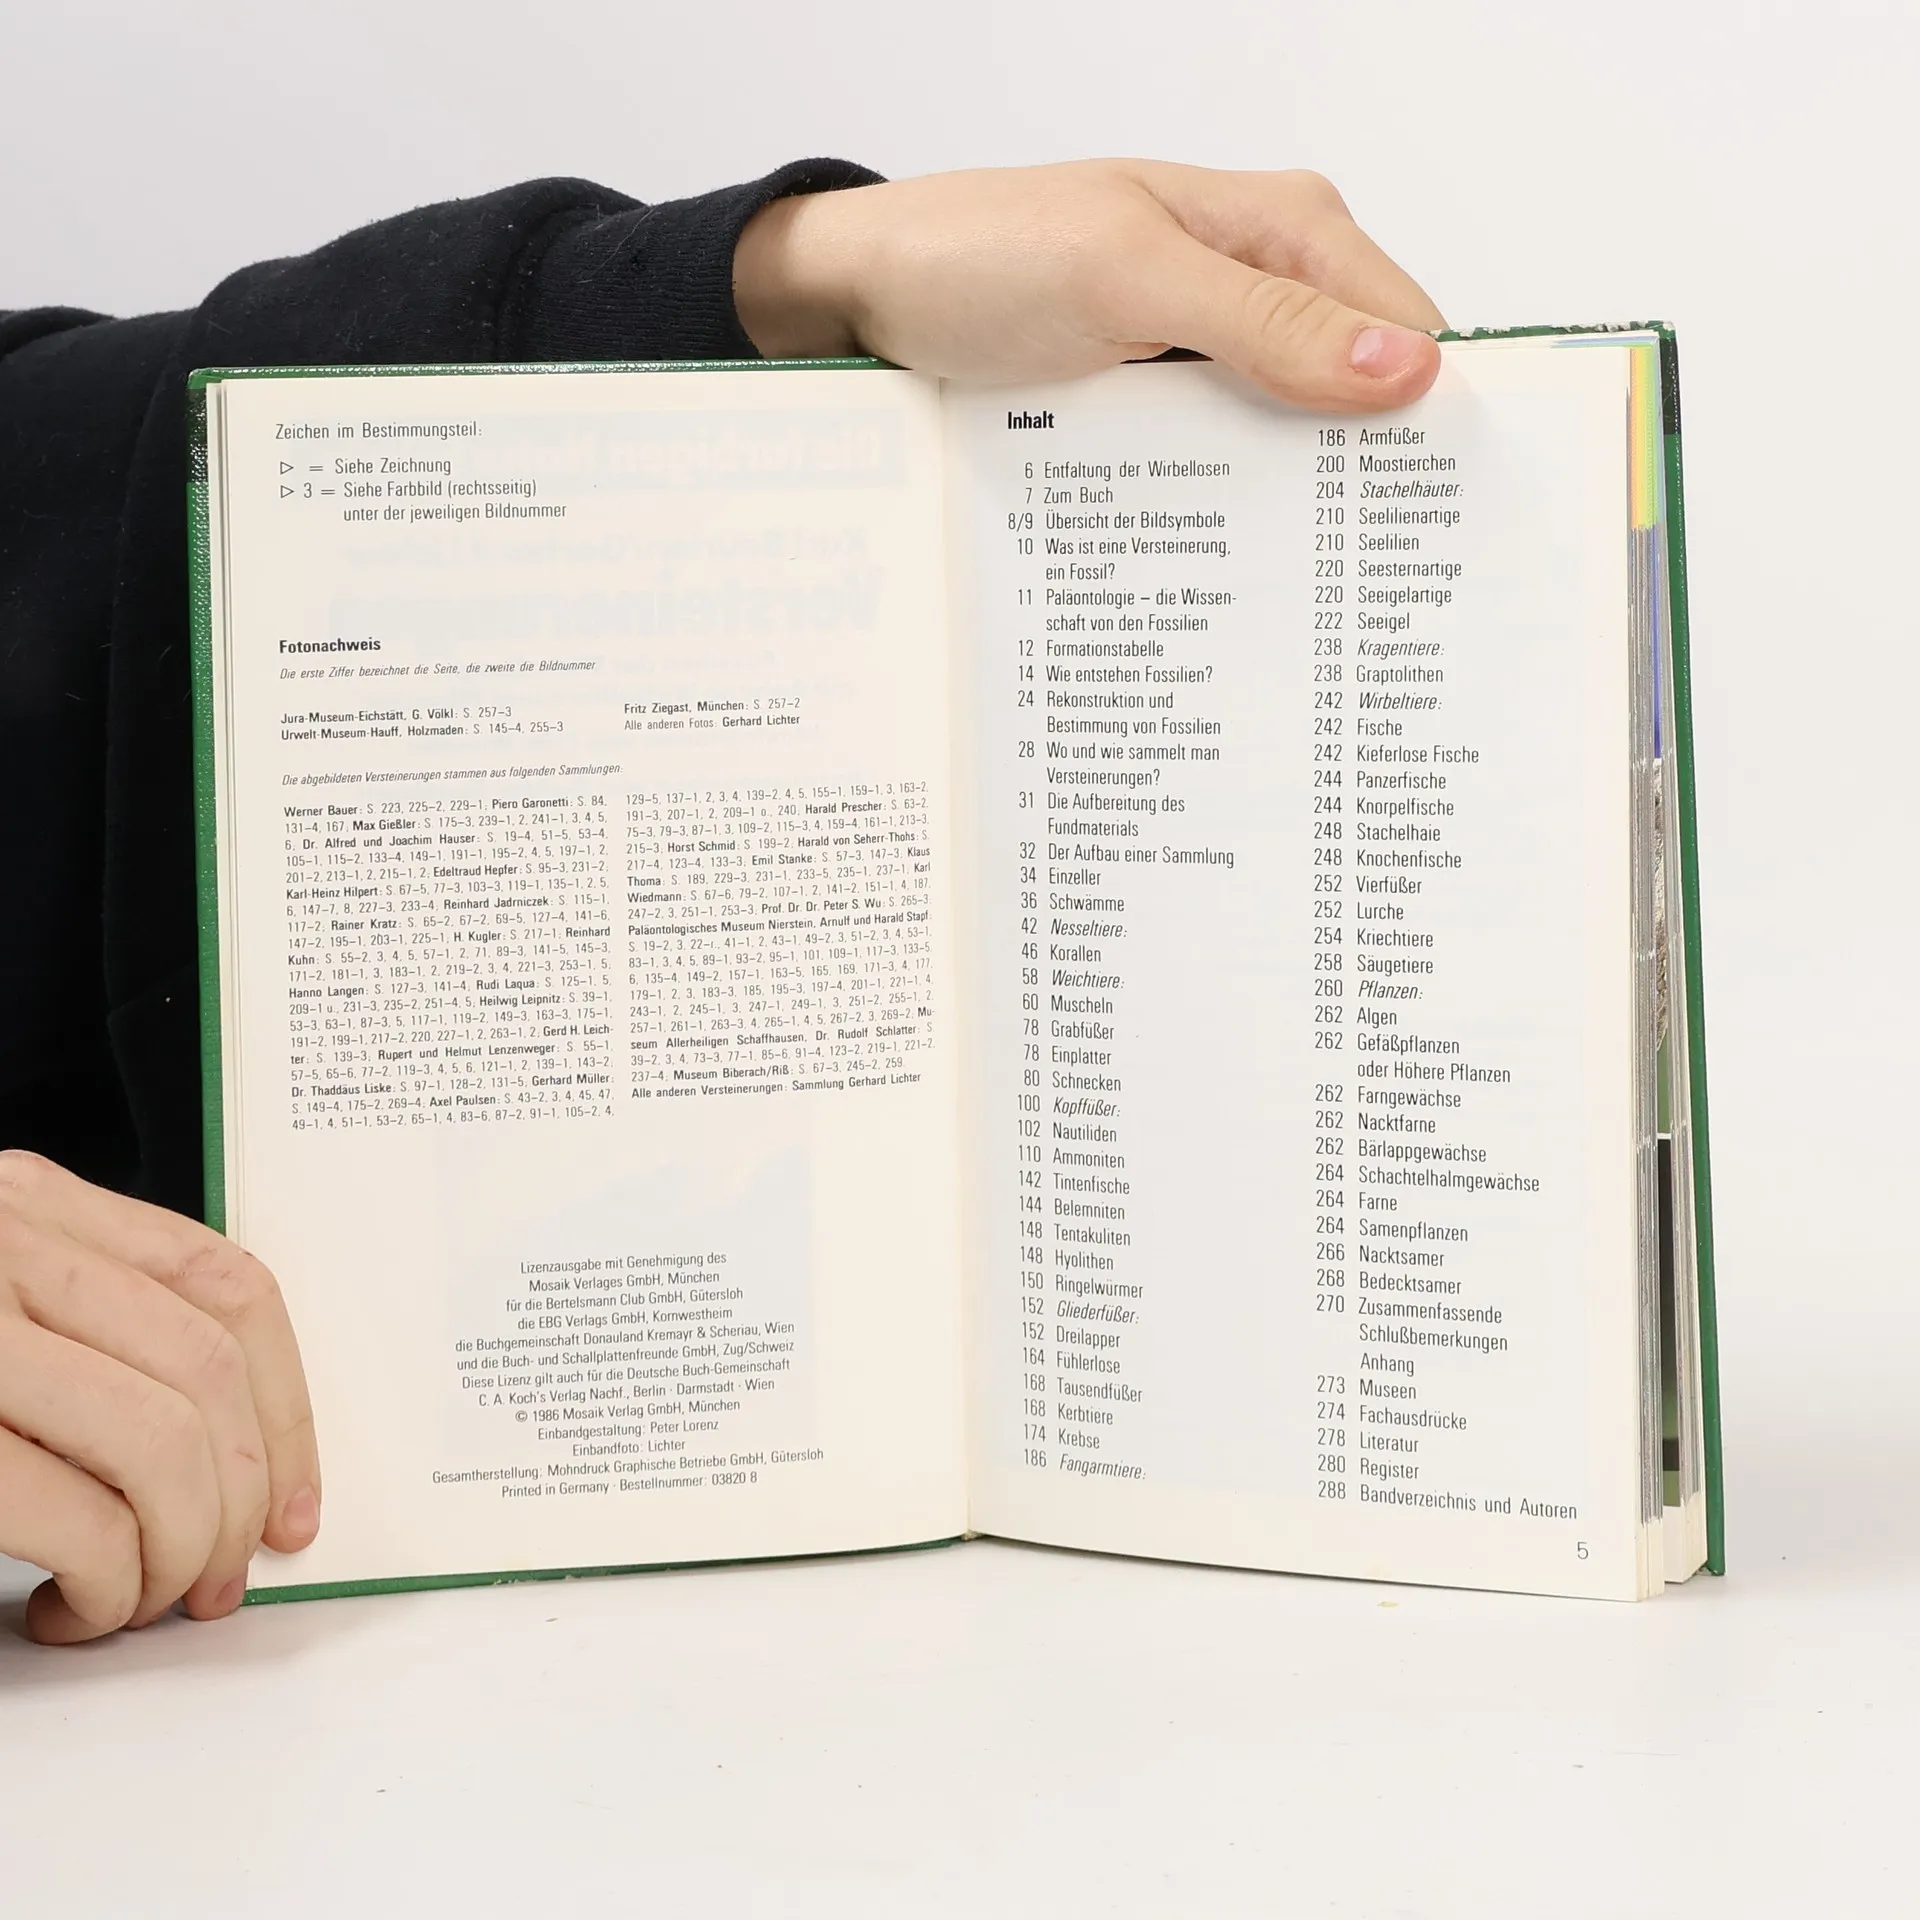 Zeichen im Bestimmungsteil:
▷ = Siehe Zeichnung
▷ 3 = Siehe Farbbild (rechtsseitig)
unter der jeweiligen Bildnummer
Fotonachweis
Die erste Ziffer bezeichnet die Seite, die zweite die Bildnummer
Jura-Museum-Eichstätt, G. Völkl: S. 257–3
Urwelt-Museum-Hauff, Holzmaden: S. 145–4, 255–3
Fritz Ziegast, München: S. 257–2
Alle anderen Fotos: Gerhard Lichter
Die abgebildeten Versteinerungen stammen aus folgenden Sammlungen:
Werner Bauer: S. 223, 225–2, 229–1; Piero Garonetti: S. 84,
131–4, 167; Max Gießler: S. 175–3, 239–1, 2, 241–1, 3, 4, 5,
6; Dr. Alfred und Joachim Hauser: S. 19–4, 51–5, 53–4,
105–1, 115–2, 133–4, 149–1, 191–1, 195–2, 4, 5, 197–1, 2,
201–2, 213–1, 2, 215–1, 2; Edeltraud Hepfer: S. 95–3, 231–2;
Karl-Heinz Hilpert: S. 67–5, 77–3, 103–3, 119–1, 135–1, 2, 5,
6, 147–7, 8, 227–3, 233–4; Reinhard Jadrniczek: S. 115–1,
117–2; Rainer Kratz: S. 65–2, 67–2, 69–5, 127–4, 141–6,
147–2, 195–1, 203–1, 225–1; H. Kugler: S. 217–1; Reinhard
Kuhn: S. 55–2, 3, 4, 5, 57–1, 2, 71, 89–3, 141–5, 145–3,
171–2, 181–1, 3, 183–1, 2, 219–2, 3, 4, 221–3, 253–1, 5;
Hanno Langen: S. 127–3, 141–4; Rudi Laqua: S. 125–1, 5,
209–1 u., 231–3, 235–2, 251–4, 5; Heilwig Leipnitz: S. 39–1,
53–3, 63–1, 87–3, 5, 117–1, 119–2, 149–3, 163–3, 175–1,
191–2, 199–1, 217–2, 220, 227–1, 2, 263–1, 2; Gerd H. Leich-
ter: S. 139–3; Rupert und Helmut Lenzenweger: S. 55–1,
57–5, 65–6, 77–2, 119–3, 4, 5, 6, 121–1, 2, 139–1, 143–2;
Dr. Thaddäus Liske: S. 97–1, 128–2, 131–5; Gerhard Müller:
S. 149–4, 175–2, 269–4; Axel Paulsen: S. 43–2, 3, 4, 45, 47,
49–1, 4, 51–1, 53–2, 65–1, 4, 83–6, 87–2, 91–1, 105–2, 4,
129–5, 137–1, 2, 3, 4, 139–2, 4, 5, 155–1, 159–1, 3, 163–2,
191–3, 207–1, 2, 209–1 o., 240; Harald Prescher: S. 63–2,
75–3, 79–3, 87–1, 3, 109–2, 115–3, 4, 159–4, 161–1, 213–3,
215–3; Horst Schmid: S. 199–2; Harald von Seherr-Thohs: S.
217–4, 123–4, 133–3; Emil Stanke: S. 57–3, 147–3; Klaus
Thoma: S. 189, 229–3, 231–1, 233–5, 235–1, 237–1; Karl
Wiedmann: S. 67–6, 79–2, 107–1, 2, 141–2, 151–1, 4, 187,
247–2, 3, 251–1, 253–3; Prof. Dr. Dr. Peter S. Wu: S. 265–3;
Paläontologisches Museum Nierstein, Arnulf und Harald Stapf:
S. 19–2, 3, 22–r., 41–1, 2, 43–1, 49–2, 3, 51–2, 3, 4, 53–1,
83–1, 3, 4, 5, 89–1, 93–2, 95–1, 101, 109–1, 117–3, 133–5,
6, 135–4, 149–2, 157–1, 163–5, 165, 169, 171–3, 4, 177,
179–1, 2, 3, 183–3, 185, 195–3, 197–4, 201–1, 221–1, 4,
243–1, 2, 245–1, 3, 247–1, 249–1, 3, 251–2, 255–1, 2,
257–1, 261–1, 263–3, 4, 265–1, 4, 5, 267–2, 3, 269–2; Mu-
seum Allerheiligen Schaffhausen, Dr. Rudolf Schlatter: S.
39–2, 3, 4, 73–3, 77–1, 85–6, 91–4, 123–2, 219–1, 221–2,
237–4; Museum Biberach/Riß: S. 67–3, 245–2, 259.
Alle anderen Versteinerungen: Sammlung Gerhard Lichter
Lizenzausgabe mit Genehmigung des
Mosaik Verlages GmbH, München
für die Bertelsmann Club GmbH, Gütersloh
die EBG Verlags GmbH, Kornwestheim
die Buchgemeinschaft Donauland Kremayr & Scheriau, Wien
und die Buch- und Schallplattenfreunde GmbH, Zug/Schweiz
Diese Lizenz gilt auch für die Deutsche Buch-Gemeinschaft
C. A. Koch's Verlag Nachf., Berlin · Darmstadt · Wien
© 1986 Mosaik Verlag GmbH, München
Einbandgestaltung: Peter Lorenz
Einbandfoto: Lichter
Gesamtherstellung: Mohndruck Graphische Betriebe GmbH, Gütersloh
Printed in Germany · Bestellnummer: 03820 8
Inhalt
6 Entfaltung der Wirbellosen
7 Zum Buch
8/9 Übersicht der Bildsymbole
10 Was ist eine Versteinerung,
ein Fossil?
11 Paläontologie – die Wissen-
schaft von den Fossilien
12 Formationstabelle
14 Wie entstehen Fossilien?
24 Rekonstruktion und
Bestimmung von Fossilien
28 Wo und wie sammelt man
Versteinerungen?
31 Die Aufbereitung des
Fundmaterials
32 Der Aufbau einer Sammlung
34 Einzeller
36 Schwämme
42 Nesseltiere:
46 Korallen
58 Weichtiere:
60 Muscheln
78 Grabfüßer
78 Einplatter
80 Schnecken
100 Kopffüßer:
102 Nautiliden
110 Ammoniten
142 Tintenfische
144 Belemniten
148 Tentakuliten
148 Hyolithen
150 Ringelwürmer
152 Gliederfüßer:
152 Dreilapper
164 Fühlerlose
168 Tausendfüßer
168 Kerbtiere
174 Krebse
186 Fangarmtiere:
186 Armfüßer
200 Moostierchen
204 Stachelhäuter:
210 Seelilienartige
210 Seelilien
220 Seesternartige
220 Seeigelartige
222 Seeigel
238 Kragentiere:
238 Graptolithen
242 Wirbeltiere:
242 Fische
242 Kieferlose Fische
244 Panzerfische
244 Knorpelfische
248 Stachelhaie
248 Knochenfische
252 Vierfüßer
252 Lurche
254 Kriechtiere
258 Säugetiere
260 Pflanzen:
262 Algen
262 Gefäßpflanzen
oder Höhere Pflanzen
262 Farngewächse
262 Nacktfarne
262 Bärlappgewächse
264 Schachtelhalmgewächse
264 Farne
264 Samenpflanzen
266 Nacktsamer
268 Bedecktsamer
270 Zusammenfassende
Schlußbemerkungen
Anhang
273 Museen
274 Fachausdrücke
278 Literatur
280 Register
288 Bandverzeichnis und Autoren
5